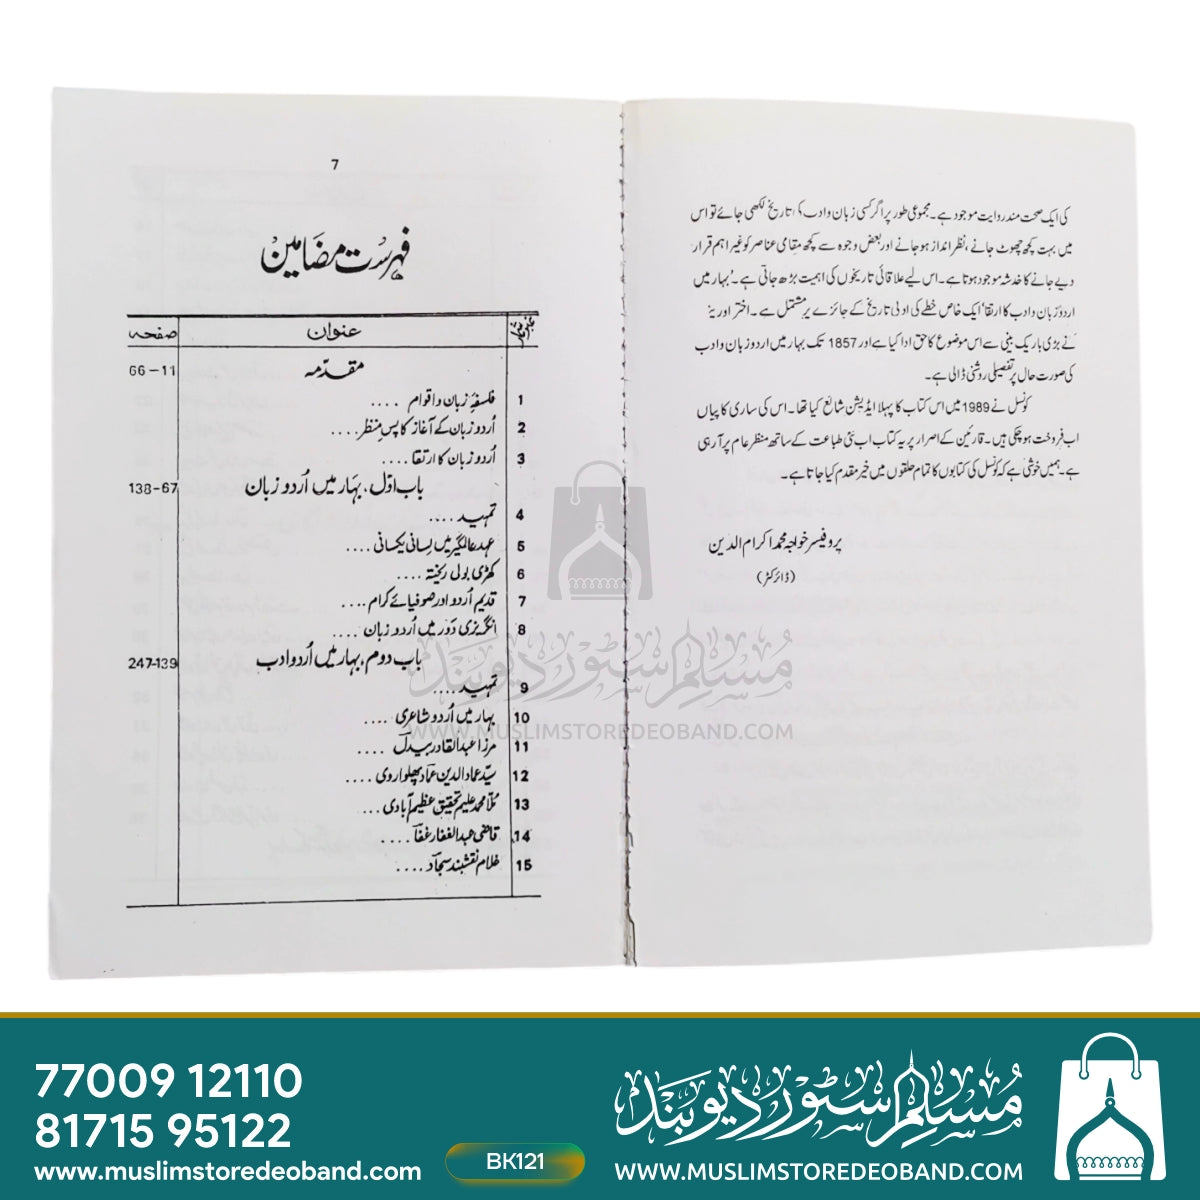 کی ایک صحت مند روایت موجود ہے۔ مجموعی طور پر اگر کسی زبان و ادب کی تاریخ لکھی جائے تو اس
میں بہت کچھ چھوٹ جانے، نظر انداز ہو جانے اور بعض وجوہ سے کچھ مقامی عناصر کو غیر اہم قرار
دیے جانے کا خدشہ موجود ہوتا ہے۔ اس لیے علاقائی تاریخوں کی اہمیت بڑھ جاتی ہے۔ 'بہار میں
اردو زبان و ادب کا ارتقا' ایک خاص خطے کی ادبی تاریخ کے جائزے پر مشتمل ہے۔ اختر اورینوی
نے بڑی باریک بینی سے اس موضوع کا حق ادا کیا ہے اور 1857 تک بہار میں اردو زبان و ادب
کی صورت حال پر تفصیلی روشنی ڈالی ہے۔
کونسل نے 1989 میں اس کتاب کا پہلا ایڈیشن شائع کیا تھا۔ اس کی ساری کاپیاں
اب فروخت ہو چکی ہیں۔ قارئین کے اصرار پر یہ کتاب اب نئی طباعت کے ساتھ منظر عام پر آ رہی
ہے۔ ہمیں خوشی ہے کہ کونسل کی کتابوں کا تمام حلقوں میں خیر مقدم کیا جاتا ہے۔
پروفیسر خواجہ محمد اکرام الدین
(ڈائرکٹر)
7
فہرست مضامین
نمبر شمار عنوان صفحہ
مقدمہ 66-11
1 فلسفۂ زبان و اقوام ....
2 اُردو زبان کے آغاز کا پس منظر ....
3 اُردو زبان کا ارتقا ....
باب اوّل، بہار میں اُردو زبان 138-67
4 تمہید ....
5 عہد عالمگیر میں لسانی یکسانی ....
6 کھڑی بولی ریختہ ....
7 قدیم اُردو اور صوفیائے کرام ....
8 انگریزی دَور میں اُردو زبان ....
باب دوم، بہار میں اُردو ادب 247-139
9 تمہید ....
10 بہار میں اُردو شاعری ....
11 مرزا عبدالقادر بیدل ....
12 سیّد عماد الدین عماد پھلواروی ....
13 مُلّا محمد علیم تحقیق عظیم آبادی ...
14 قاضی عبدالغفار غفا ....
15 غلام نقشبند سجاد ....
مسلم سٹور دیوبند
WWW.MUSLIMSTOREDEOBAND.COM
77009 12110
81715 95122
www.muslimstoredeoband.com
BK121
مسلم سٹور دیوبند
WWW.MUSLIMSTOREDEOBAND.COM